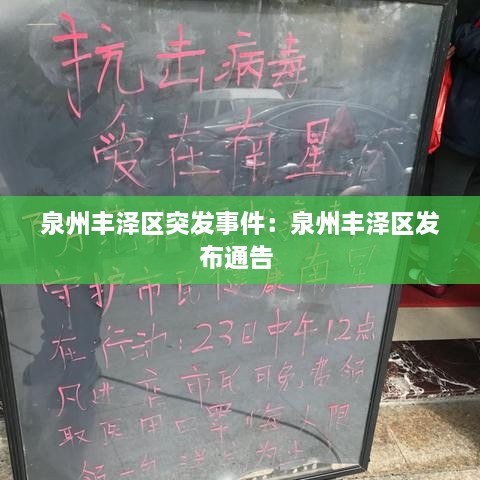 抗击病毒
爱在南星
泉州丰泽区突发事件：泉州丰泽区发
布通告
守护市民健康南星
在行动：23日中午12点
凡进店市民可免费领
取医用口罩每人限
领一包 送完为止